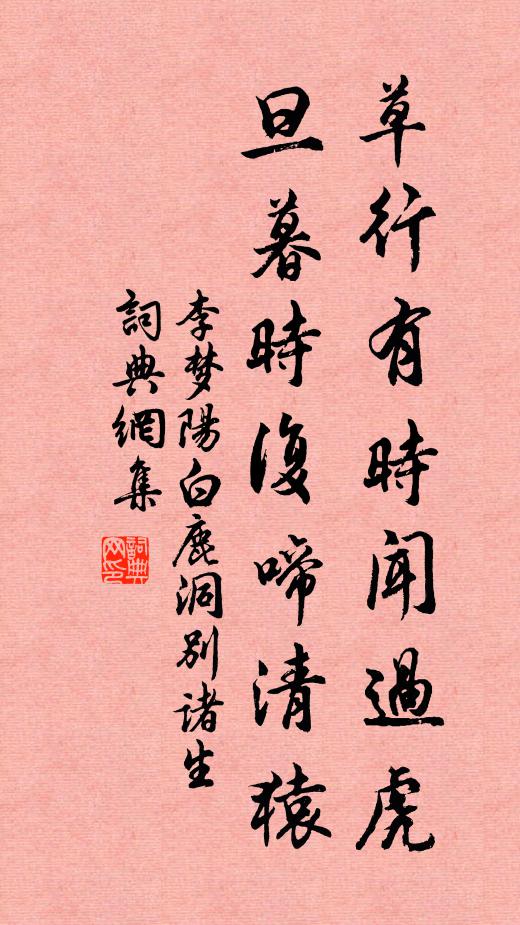 草行有時聞過虎
旦暮時復啼清猿
李梦陽白鹿洞別諸生
詞典網集
詞典
网印